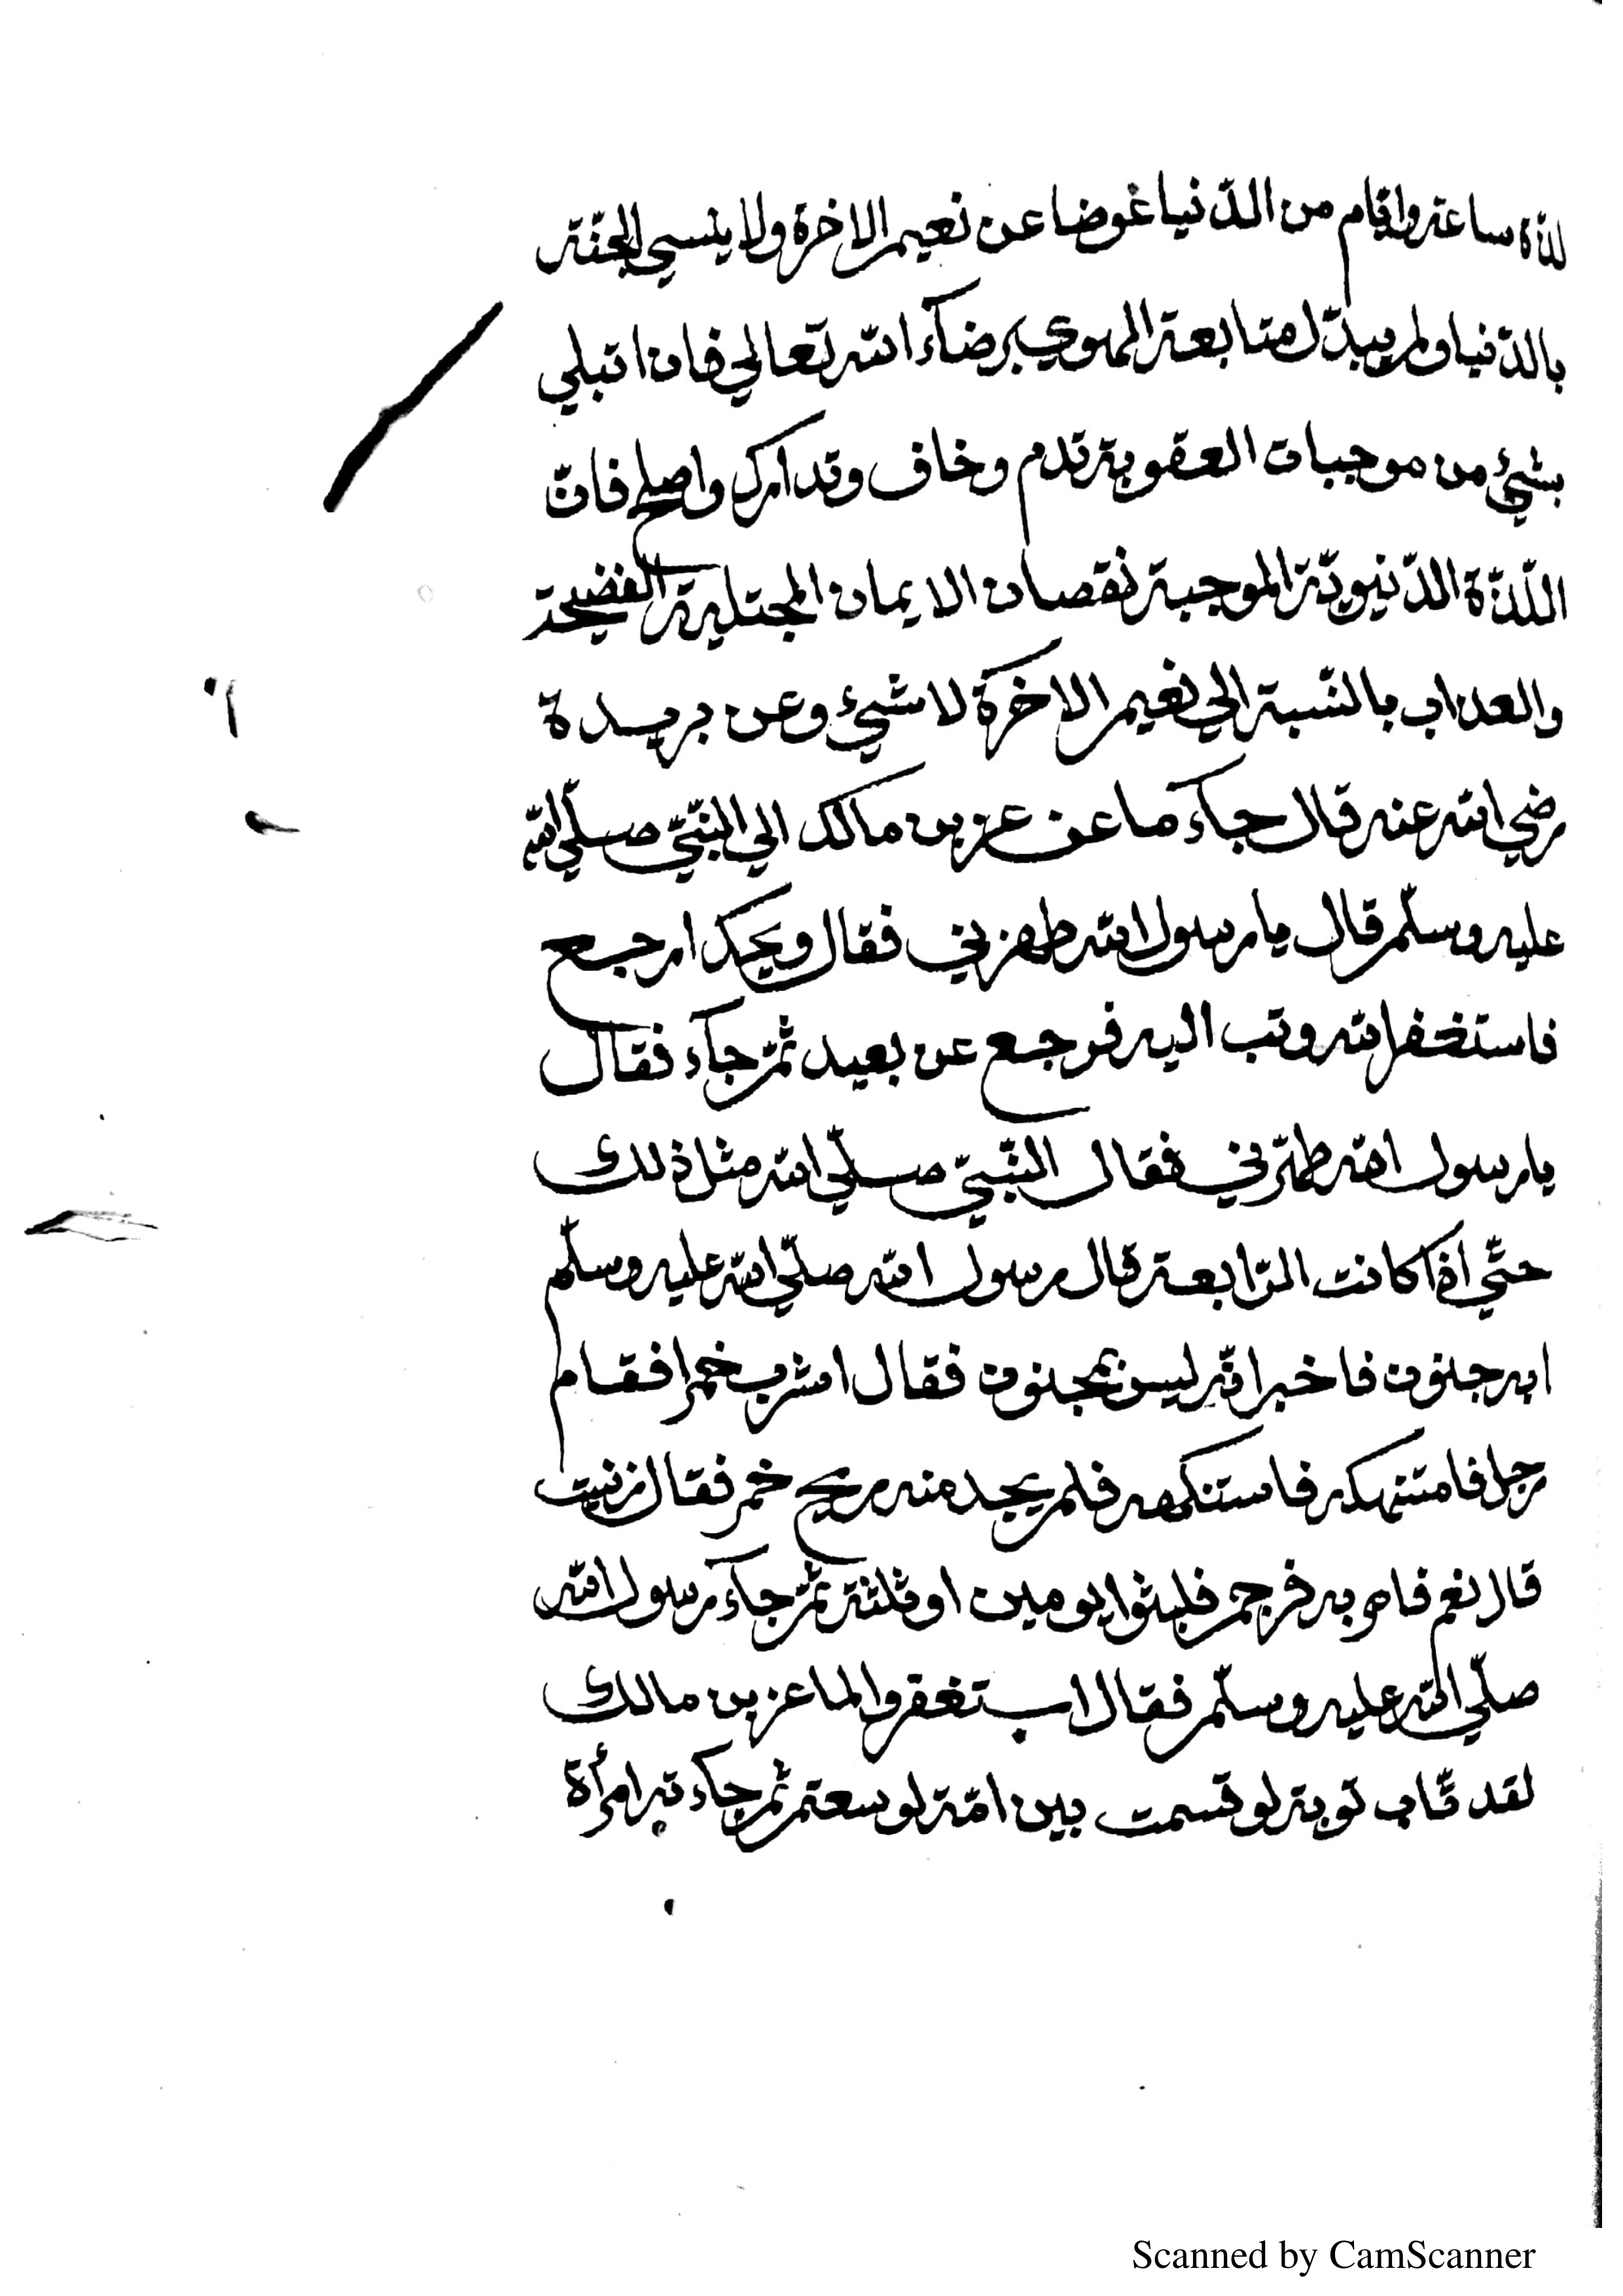 لذة ساعة واقام من الدّنيا غوضا عن نعيم الاخرة ولا ينسي الجنّة
بالدّنيا ولم يبدّل متابعة الهوي برضآء الله تعالي فان اتبلي
بشيئ من موجبات العقوبة تدم وخاف وتدارك واصلح فانّ
اللّذّة الدّنيويّة الموجبة نقصان الايمان المجتلبة الفضيحة
والعذاب بالنّسبة الي نعيم الاخرة لا شيئ وعن بريدة
رضي الله عنه قال جآء ماعن عز بن مالك الي النّبيّ صلّي الله
عليه وسلّم قال يا رسول الله طهرني فقال ويحك ارجع
فاستغفر الله وتب اليه فرجع عن بعيد ثمّ جآء فقال
يا رسول الله طهّرني فقال النّبيّ صلّي الله مثل ذلك
حتّي اذا كانت الرّابعة قال رسول الله صلّي الله عليه وسلّم
ابه جنون فاخبر انّه ليس بمجنون فقال اشرب خمرا فقام
رجل فاستنهكه فاستنكهه فلم يجد منه ريح خمر فقال ازنيت
قال نعم فامر به فرجم فلبثوا يومين او ثلثة ثمّ جآء رسول الله
صلّي الله عليه وسلّم فقال استغفروا لماعز بن مالك
لقد تاب توبة لو قسمت بين امّة لوسعتهم ثمّ جآءته امرأة
Scanned by CamScanner